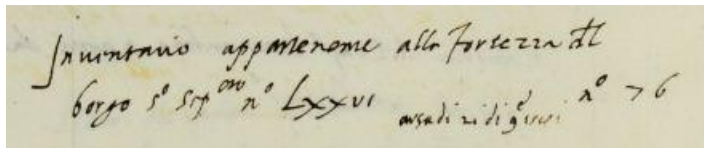 Inventario appartenente alla fortezza del
borgo s.o sep.oro n.o Lxxvi n.o 76